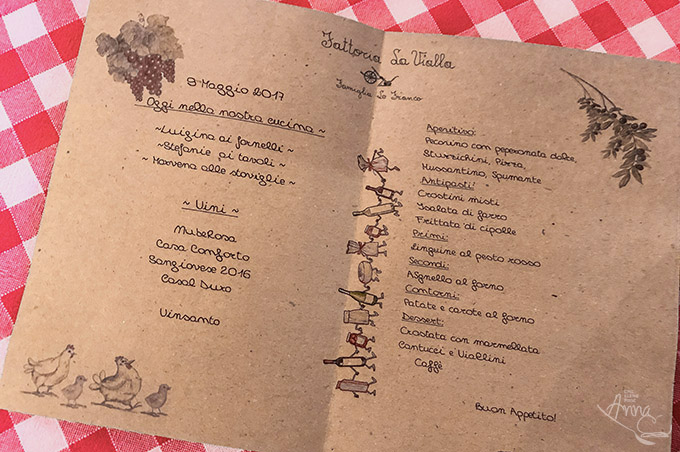 8 Maggio 2017
Oggi nella nostra cucina ~
~Luigina ai fornelli~
~Stefanie ai tavoli~
~ Marvena alle stoviglie ~
~ Vini ~
MuseRosa
Casa Conforto
Sangiovese 2016
Casal Duro
Vinsanto
Fattoria La Vialla
Famiglia Lo Franco
Aperitivo:
Pecorino con peperonata dolce,
Stuzzichini, Pizza,
Mussantino, Spumante
Antipasti:
Crostini misti
Isalata di farro
Frittata di cipolle
Primi:
Linguine al pesto rosso
Secondi:
Agnello al forno
Contorni:
Patate e carote al forno
Dessert:
Crostata con marmellata
Cantucci e Viallini
Caffè
Buon Appetito!
Anna